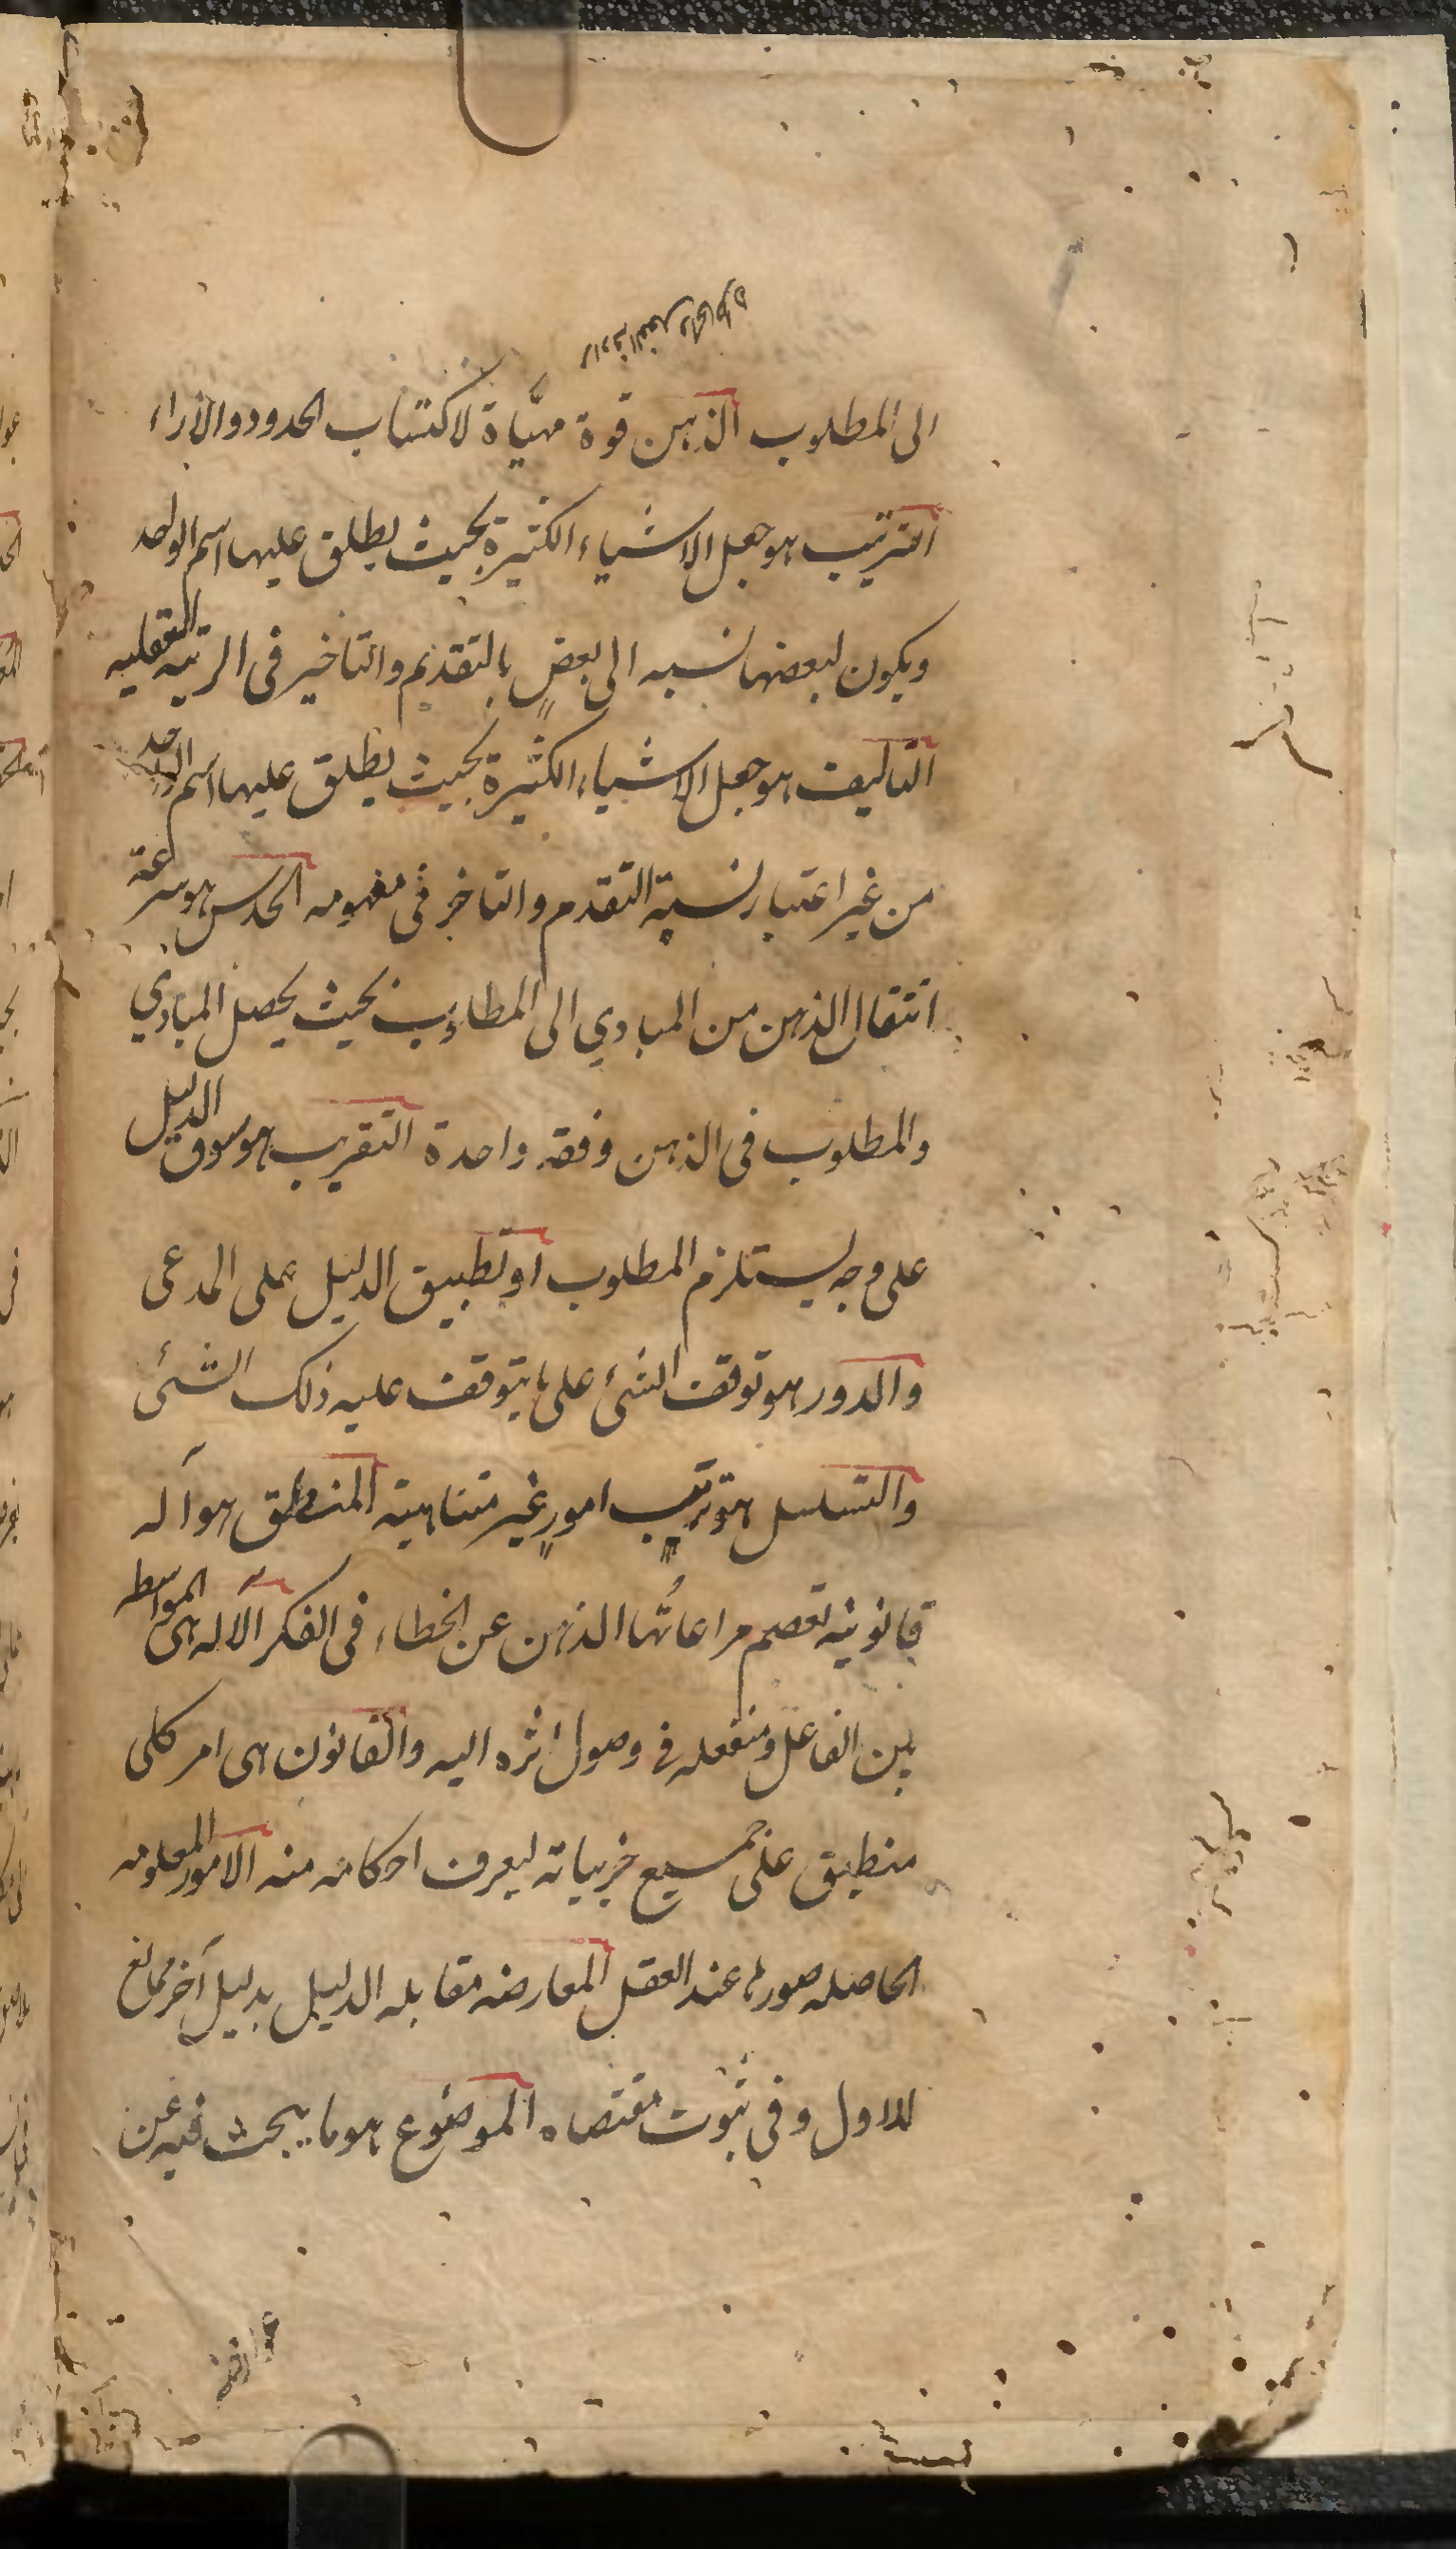 الى المطلوب الذهن قوة مهيّأة لاكتساب الحدود والآراء
الترتيب هو جعل الاشياء الكثيرة بحيث يطلق عليها اسم الواحد
ويكون لبعضها نسبه الى بعضٍ بالتقديم والتاخير فى الرتبه العقليه
التاليف هو جعل الاشياء الكثيرة بحيث يطلق عليها اسم الواحد
من غير اعتبار نسبة التقدم والتاخر فى مفهومه الحدس هو سرعة
انتقال الذهن من المبادي الى المطالب بحيث يحصل المبادي
والمطلوب فى الذهن دفعة واحدة التقريب هو سوق الدليل
على وجه يستلزم المطلوب او تطبيق الدليل على المدعى
والدور هو توقف الشئ على ما يتوقف عليه ذلك الشئ
والتسلسل هو ترتيب امورٍ غير متناهية المنطق هو آلة
قانونية تعصم مراعاتُها الذهن عن الخطاء فى الفكر الآلة هى الواسطه
بين الفاعل ومنفعله فى وصول اثره اليه والقانون هى امر كلى
منطبق على جميع جزئياته ليعرف احكامه منه الامور المعلومه
الحاصله صورها عند العقل المعارضه مقابله الدليل بدليل آخر ممانع
للاول وفى ثبوت مقتضاه الموضوع هو ما يبحث فيه عن
عوارضه